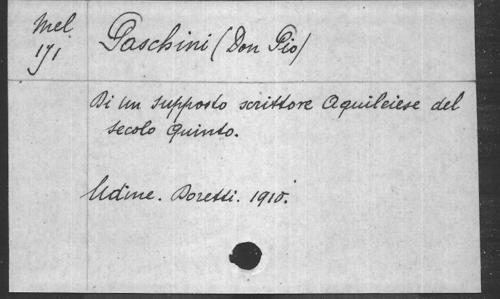 Mel
171
Paschini (Don Pio)
Di un supposto scrittore Aquileiese del
secolo Quinto.
Udine. Doretti. 1910.